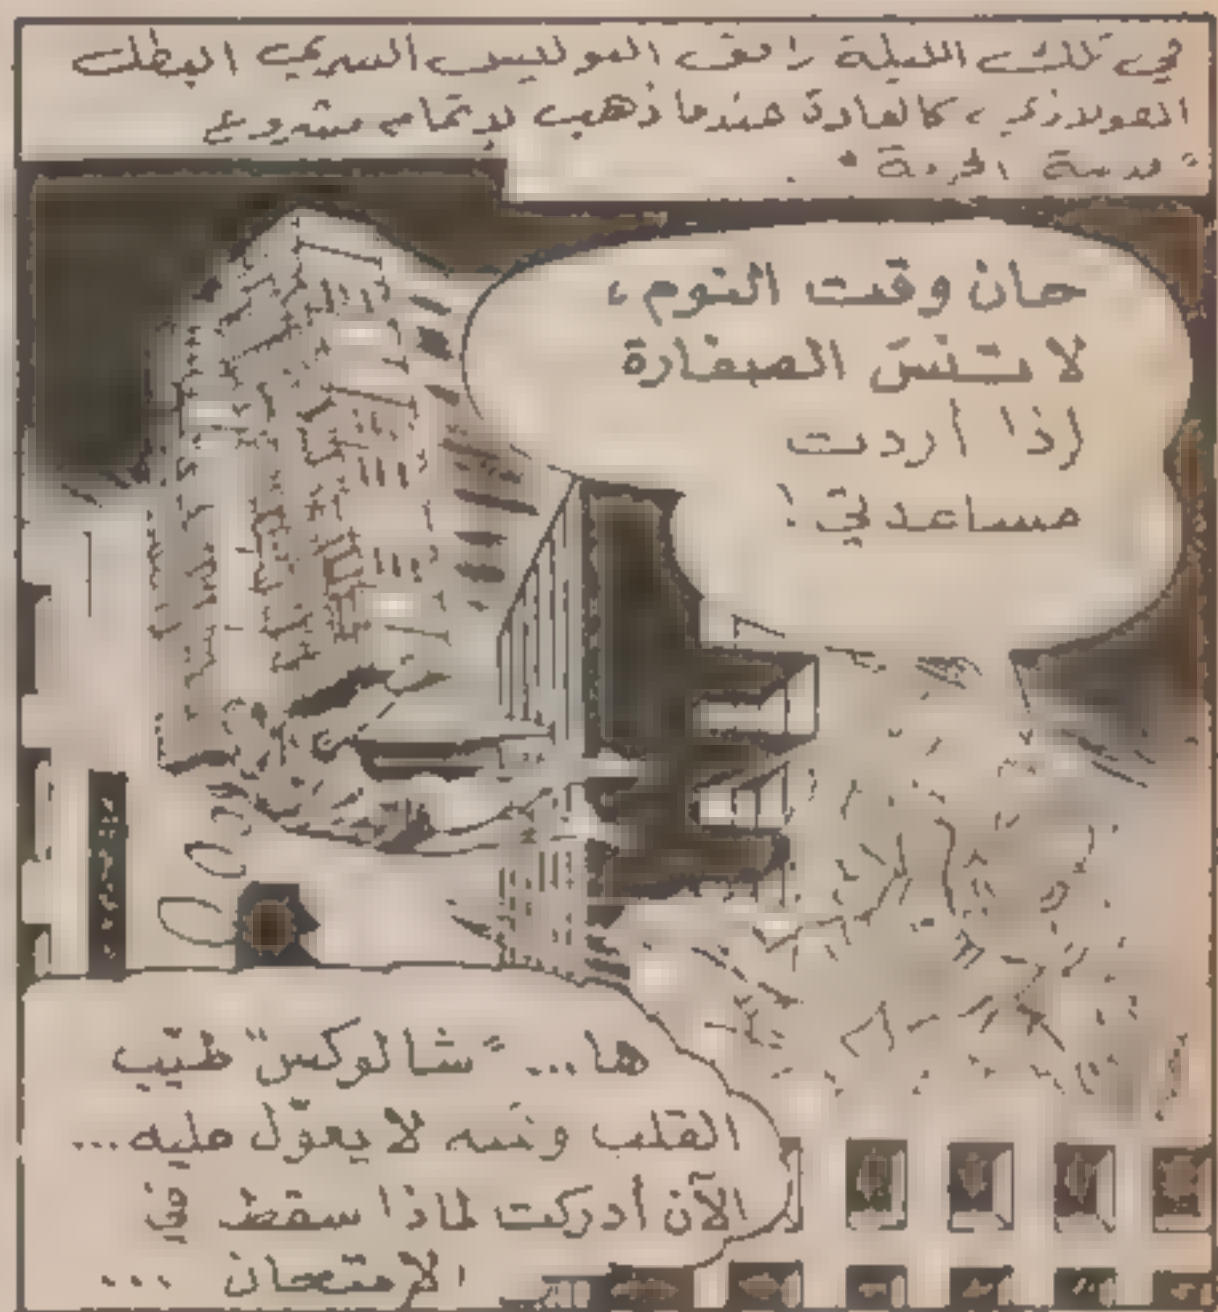 في تلك الليلة رافق البوليس السري البطل
الفولاذي، كالعادة عندما ذهب لإتمام مشروع
الخدمة".
حان وقت النوم،
لا تنسَ الصفارة
إذا أردت
مساعدتي!
ها... "شالوكس" طيّب
القلب ولكنه لا يعوّل عليه...
الآن أدركت لماذا سقط في
الإمتحان ...